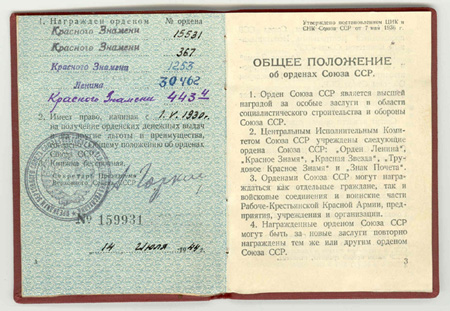 1. Награжден орденом № ордена
Красного Знамени 15531
Красного Знамени 367
Красного Знамени 1253
Ленина 30462
Красного Знамени 443
2. Имеет право, начиная с 1.V.1930г.
на получение орденских денежных выдач
и на другие льготы и преимущества,
общему положению об орденах
Союза ССР.
Книжка бессрочная.
Секретарь Президиума
Верховного Совета
Горкин
№ 159931
14 Июля 1944г.
Утверждено постановлением ЦИК и
СНК Союза ССР от 7 мая 1936 г.
ОБЩЕЕ ПОЛОЖЕНИЕ
об орденах Союза ССР.
1. Орден Союза ССР является высшей
наградой за особые заслуги в области
социалистического строительства и обороны
Союза ССР.
2. Центральным Исполнительным Комитетом
Союза ССР учреждены следующие
ордена Союза ССР: „Орден Ленина",
„Красное Знамя", „Красная Звезда", „Трудовое
Красное Знамя" и „Знак Почета".
3. Орденами Союза ССР могут награждаться
как отдельные граждане, так и
войсковые соединения и воинские части
Рабоче-Крестьянской Красной Армии, предприятия,
учреждения и организации.
4. Награжденные орденом Союза ССР
могут быть за новые заслуги повторно
награждены тем же или другим орденом
Союза ССР.
3